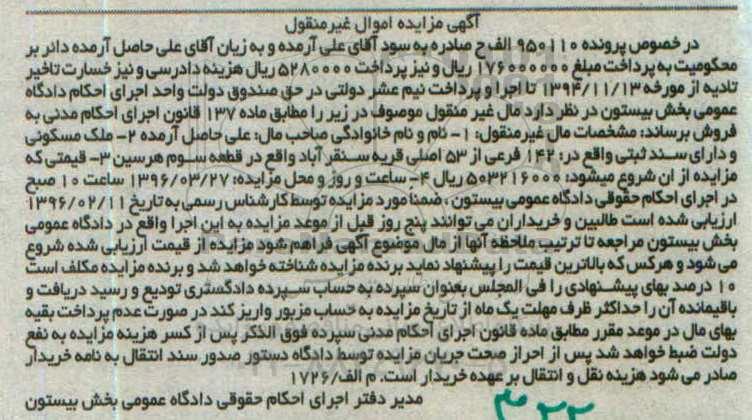 آگهی مزایده اموال غیرمنقول
در خصوص پرونده ۹۵۰۱۱۰ الف ح صادره به سود آقای علی آرمده و به زیان آقای علی حاصل آرمده دائر بر
محکومیت به پرداخت مبلغ ۱۷۶۰۰۰۰۰۰ ریال و نیز پرداخت ۵۲۸۰۰۰۰ ریال هزینه دادرسی و نیز خسارت تاخیر
تادیه از مورخه ۱۳۹۴/۱۱/۱۳ تا اجرا و پرداخت نیم عشر دولتی در حق صندوق دولت واحد اجرای احکام دادگاه
عمومی بخش بیستون در نظر دارد مال غیر منقول موصوف در زیر را مطابق ماده ۱۳۷ قانون اجرای احکام مدنی به
فروش برساند: مشخصات مال غیرمنقول: ۱- نام و نام خانوادگی صاحب مال: علی حاصل آرمده ۲- ملک مسکونی
و دارای سند ثبتی واقع در: ۱۴۲ فرعی از ۵۳ اصلی قریه سنقر آباد واقع در قطعه سوم هرسین ۳- قیمتی که
مزایده از ان شروع میشود: ۵۰۳۲۱۶۰۰۰ ریال ۴- ساعت و روز و محل مزایده: ۱۳۹۶/۰۳/۲۷ ساعت ۱۰ صبح
در اجرای احکام حقوقی دادگاه عمومی بیستون، ضمنا مورد مزایده توسط کارشناس رسمی به تاریخ ۱۳۹۶/۰۲/۱۱
ارزیابی شده است طالبین و خریداران می توانند پنج روز قبل از موعد مزایده به این اجرا واقع در دادگاه عمومی
بخش بیستون مراجعه تا ترتیب ملاحظه آنها از مال موضوع آگهی فراهم شود مزایده از قیمت ارزیابی شده شروع
می شود و هرکس که بالاترین قیمت را پیشنهاد نماید برنده مزایده شناخته خواهد شد و برنده مزایده مکلف است
۱۰ درصد بهای پیشنهادی را فی المجلس بعنوان سپرده به حساب سپرده دادگستری تودیع و رسید دریافت و
باقیمانده آن را حداکثر ظرف مهلت یک ماه از تاریخ مزایده به حساب مزبور واریز کند در صورت عدم پرداخت بقیه
بهای مال در موعد مقرر مطابق ماده قانون اجرای احکام مدنی سپرده فوق الذکر پس از کسر هزینه مزایده به نفع
دولت ضبط خواهد شد پس از احراز صحت جریان مزایده توسط دادگاه دستور صدور سند انتقال به نامه خریدار
صادر می شود هزینه نقل و انتقال بر عهده خریدار است. م الف/۱۷۲۶
مدیر دفتر اجرای احکام حقوقی دادگاه عمومی بخش بیستون